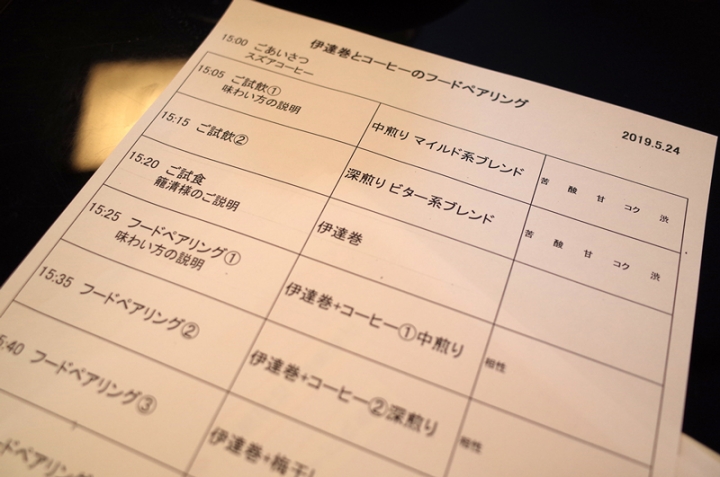 伊達巻とコーヒーのフードペアリング
2019.5.24
15:00 ごあいさつ
スズアコーヒー
15:05 ご試飲①
味わい方の説明
中煎り マイルド系ブレンド
苦 酸 甘 コク 渋
15:15 ご試飲②
深煎り ビター系ブレンド
苦 酸 甘 コク 渋
15:20 ご試食
籠清様のご説明
伊達巻
15:25 フードペアリング①
味わい方の説明
伊達巻+コーヒー①中煎り
相性
15:35 フードペアリング②
伊達巻+コーヒー②深煎り
相性
:40 フードペアリング③
伊達巻+梅干
フードペアリング